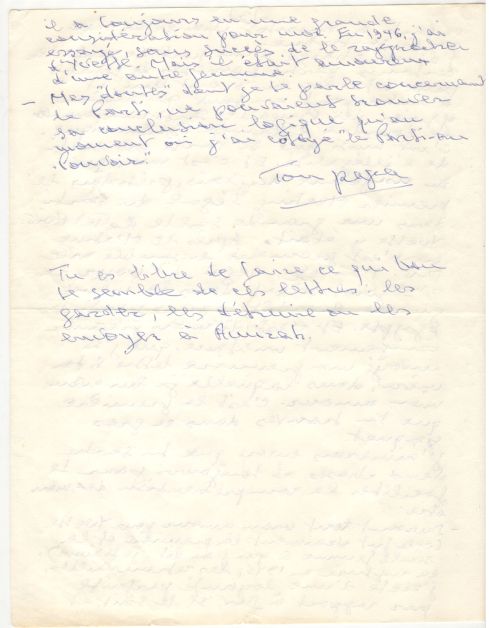 il a toujours eu une grande
considération pour moi. En 1946, j'ai
essayé, sans succès de le rapprocher
d'Yvette. Mais il était amoureux
d'une autre femme.
- Mes "doutes" dont je te parle concernant
le Parti, ne pouvaient trouver
sa conclusion logique qu'au
moment où j'ai côtoyé "le Parti-au
Pouvoir."
Ton papa
Tu es libre de faire ce qui bon
te semble de ces lettres: les
garder, les détruire ou les
envoyer à